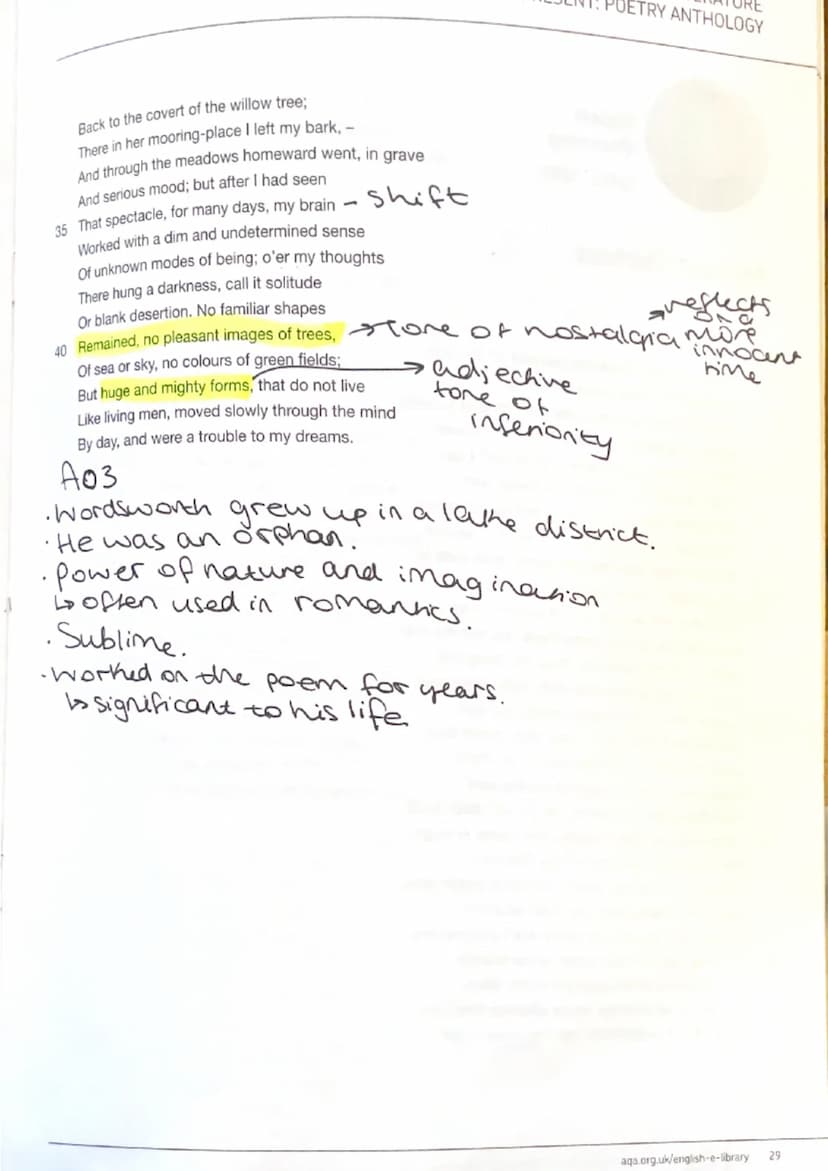 POETRY ANTHOLOGY
Back to the covert of the willow tree;
There in her mooring-place I left my bark, –
And through the meadows homeward went, in grave
And serious mood; but after I had seen
35 That spectacle, for many days, my brain – shift
Worked with a dim and undetermined sense
Of unknown modes of being; o'er my thoughts
There hung a darkness, call it solitude
Or blank desertion. No familiar shapes
40 Remained, no pleasant images of trees, → Tone of nostalgia → reflects
on a
more
innocent
time
Of sea or sky, no colours of green fields;
But huge and mighty forms, that do not live → adjective
tone of
inferiority
Like living men, moved slowly through the mind
By day, and were a trouble to my dreams.
AO3
·Wordsworth grew up in a lake district.
·He was an orphan.
·Power of nature and imagination
↳often used in romantics.
·Sublime.
·Worked on the poem for years.
↳significant to his life
aqa.org.uk/english-e-library 29